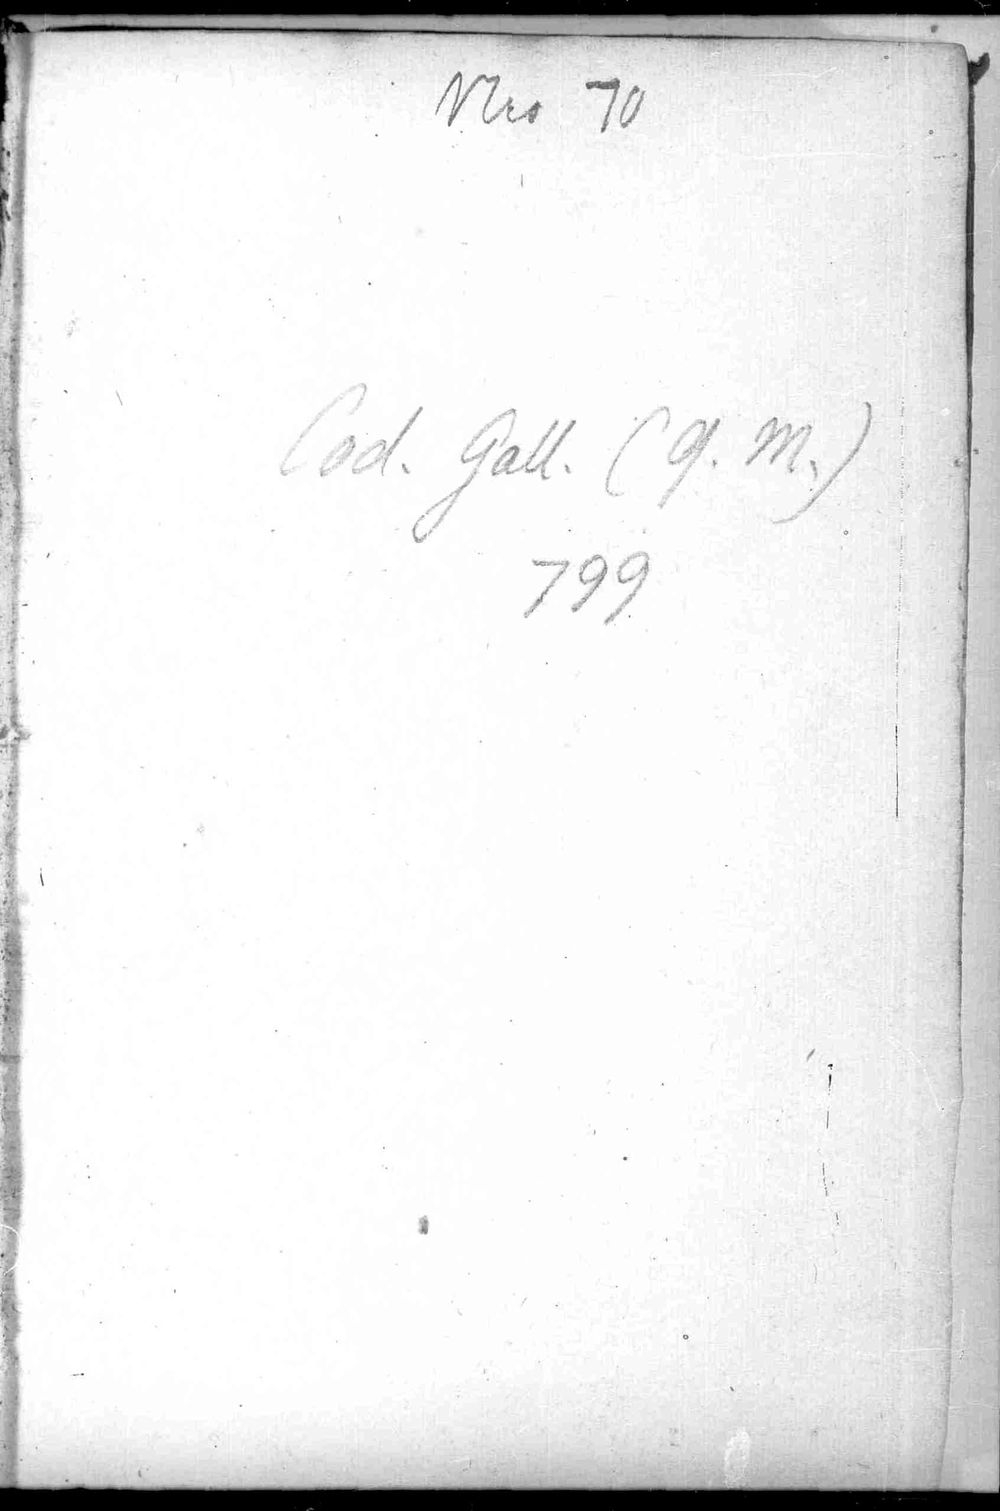 Nro 70
Cod. Gall. (g. M.)
799